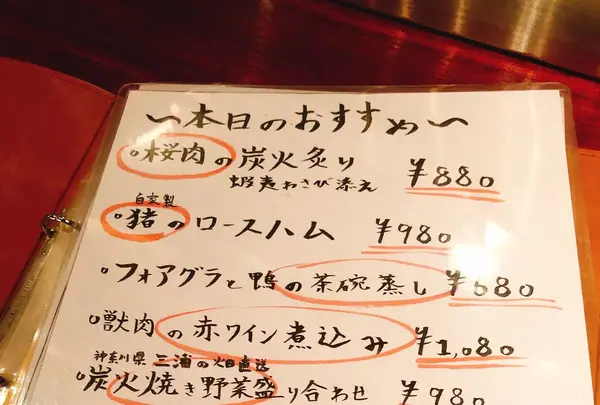 〜本日のおすすめ〜
桜肉の炭火炙り ¥880
蝦夷わさび添え
自家製
猪のロースハム ¥980
フォアグラと鴨の茶碗蒸し ¥580
獣肉の赤ワイン煮込み ¥1,080
神奈川県 三浦の畑直送
炭火焼き野菜盛り合わせ ¥980